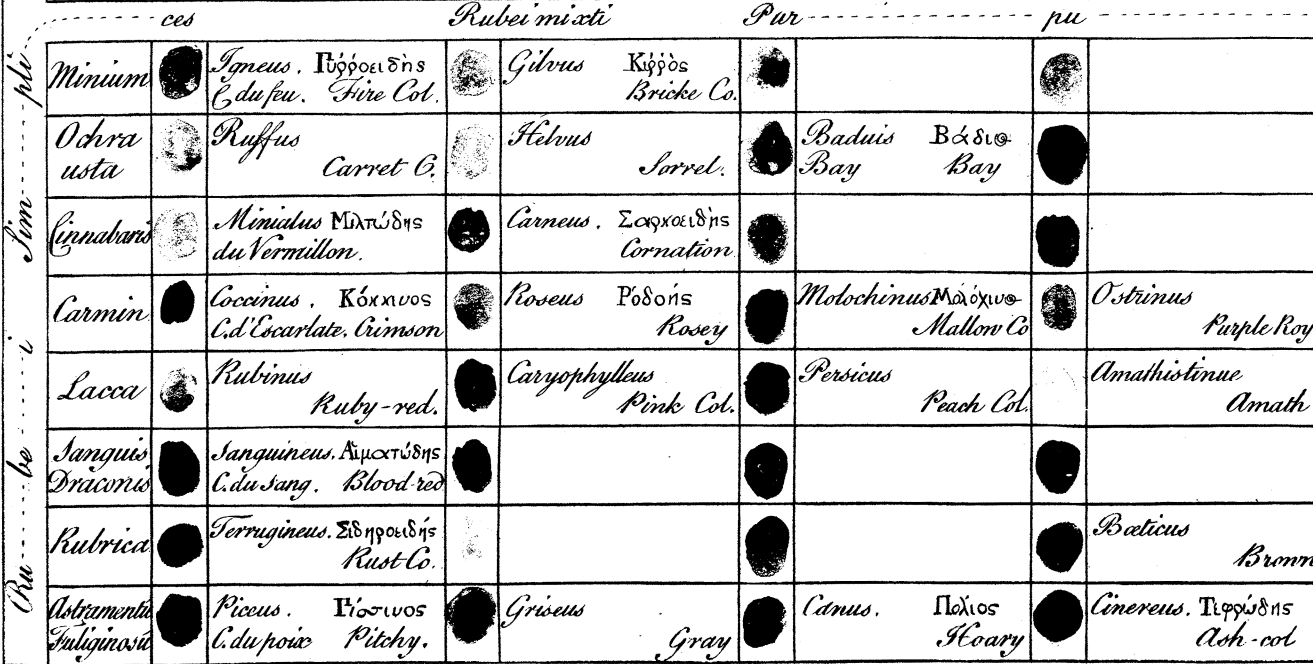 ces Rubei mixti Pur pu
Sim pli
Ru be i
Minium
Igneus. Πυῤῥοειδὴς
C du feu. Fire Col.
Gilvus Κιῤῥὸς
Bricke Co.
Ochra
usta
Ruffus
Carret C.
Helvus
Sorrel.
Baduis Βάδιος
Bay Bay
Cinnabaris
Miniatus Μιλτώδης
du Vermillon.
Carneus. Σαρκοειδὴς
Cornation
Carmin
Coccinus. Κόκκινος
C. d'Escarlate. Crimson
Roseus
Rosey
Molochinus Μολόχινος
Mallow Co
Ostrinus
Purple Roy
Lacca
Rubinus
Ruby-red.
Caryophylleus
Pink Col.
Persicus
Peach Col.
Amathistinue
Amath
Sanguis
Draconis
Sanguineus. Αἱματώδης
C. du Sang. Blood-red
Rubrica
Ferrugineus. Σιδηροειδής
Rust Co.
Bæticus
Brown
Astramentu
Fuliginosu
Piceus.
C. du poix Pitchy.
Griseus
Gray
Canus. Πολιος
Hoary
Cinereus. Τεφρώδης
Ash-col